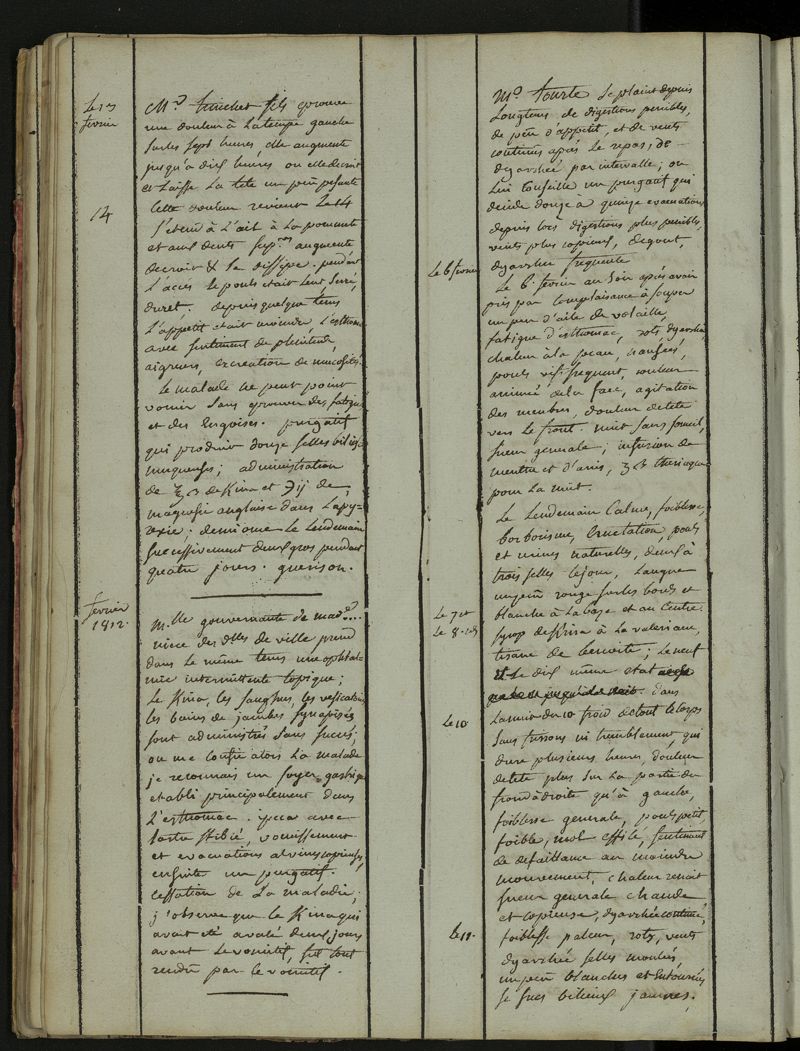 Le 13
fevrier
Mr. fils eprouve
une douleur à La tempe gauche
sur les sept heures elle augmente
jusqu'a dix heures ou elle decroit
et Laisse La tete un peu pesante
14
Cette douleur revient Le 14
s'etend à L'œil à La pommette
et aux dents supres augmente
decroit & se dissipe. pendant
L'accès le pouls etait Lent, serré,
duret. depuis quelque tems
L'appetit etait moindre, L'esthomac
avec sentiment de plenitude,
aigreurs, excreation de mucosités.
Le malade ne peut point
vomir sans eprouver des fatigues
et des angoises. purgatif
qui produit douze selles bilioso
muqueuses; administration
de ℥ ß de Kina et ℈ij de
magnesie anglaise dans L'apy=
rexie; demi once Le Lendemain
successivement deux gros pendant
quatre jours. guerison.
fevrier
1812.
Mlle gouvernante de madme....
niece des dlles de ville prend
dans Le même tems une ophtal=
mie intermittente topique;
Le Kina, les sangsues, les vesicatoires
les bains de jambes synapisés
sont administrés sans succés;
on me confie alors La malade
je reconnais un foyer gastrique
etabli principalement dans
L'esthomac. ipeca avec
tartre stibié, vomissement
et evacuations alvines copieuses,
ensuite un purgatif.
Cessation de La maladie;
j'observe que Le Kina qui
avait eté avalé deux jours
avant Le vomitif, fut tout
rendu par Le vomitif.
Me. tourte se plaint depuis
Longtems de digestions penibles,
de peu d'appetit, et de vents
continus après Le repas, de
dyarrhée par intervalle; on
Lui conseille un purgatif qui
decide douze à quinze evacuations
depuis lors digestions plus penibles,
vents plus copieux, degout,
dyarrhee frequente
Le 6 fevrier
Le 6. fevrier au soir après avoir
pris par complaisance à souper
un peu d'aile de volaille,
fatigue d'esthomac, rots, dyarrhée,
chaleur à la peau, nausées,
pouls vif, frequent, couleur
animée de la face, agitation
des membres, douleur de tete
vers Le front. nuit sans someil,
sueur generale; infusion de
menthe et d'anis, ʒ ß theriaque
pour La nuit.
Le Lendemain Calme, foiblesse,
borborisme, Eructation, pouls
et urines naturelles, deux à
trois selles le jour, Langue
un peu rouge sur les bords et
blanche à La baze et au Centre.
Le 7 et
Le 8
syrop de Kina à La valeriane,
tisane de benoite; Le neuf
et Le dix même etat
dans
Le 10
La nuit du 10 froid de tout le corps
sans frissons ni tremblement, qui
dure plusieurs heures, douleur
de tete plus sur La partie du
front à droite qu'à gauche,
foiblesse generale, pouls petit,
foible, mol effilé, sentiment
de defaillance au moindre
mouvement, chaleur renait
sueur generale chaude
et copieuse, dyarrhée continue,
Le 11.
foiblesse paleur, rots, vents
dyarrhée selles moulées
un peu blanches et Entourées
de sucs bilieux jaunes.